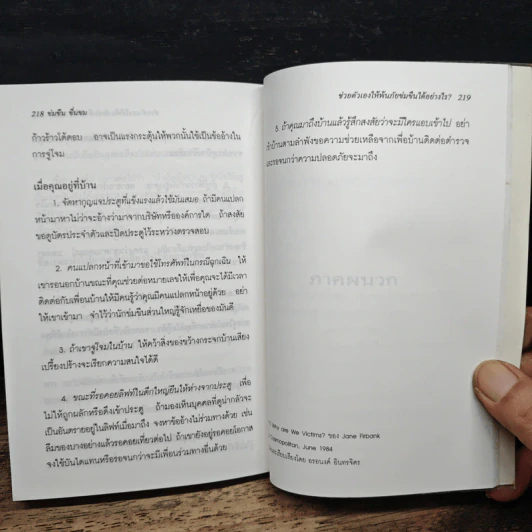 218 ข่มขืน ขื่นขม
ก้าวร้าวโต้ตอบ อาจเป็นแรงกระตุ้นให้พวกนั้นใช้เป็นข้ออ้างใน
การจู่โจม
เมื่อคุณอยู่ที่บ้าน
1. จัดหากุญแจประตูที่แข็งแรงแล้วใช้มันเสมอ ถ้ามีคนแปลก
หน้ามาหาไม่ว่าจะอ้างว่ามาจากบริษัทหรือองค์การใด ถ้าสงสัย
ขอดูบัตรประจำตัวและปิดประตูไว้ระหว่างตรวจสอบ
2. คนแปลกหน้าที่เข้ามาขอใช้โทรศัพท์ในกรณีฉุกเฉิน ให้
เขารอนอกบ้านขณะที่คุณช่วยต่อหมายเลขให้เพื่อคุณจะได้มีเวลา
ติดต่อกับเพื่อนบ้านให้มีคนรู้ว่าคุณมีคนแปลกหน้าอยู่ด้วย อย่า
ให้เขาเข้ามา จำไว้ว่านักข่มขืนส่วนใหญ่รู้จักเหยื่อของมันดี
3. ถ้าเขาจู่โจมในบ้าน ให้คว้าสิ่งของขว้างกระจกบ้านเสียง
เปรี้ยงปร้างจะเรียกความสนใจได้ดี
4. ขณะที่รอคอยลิฟท์ในตึกใหญ่ยืนให้ห่างจากประตู เพื่อ
ไม่ให้ถูกผลักหรือดึงเข้าประตู ถ้ามองเห็นบุคคลที่ดูน่ากลัวจะ
เป็นอันตรายอยู่ในลิฟท์เมื่อมาถึง จงหาข้ออ้างไม่ร่วมทางด้วย เช่น
ลืมของบางอย่างแล้วรอคอยเที่ยวต่อไป ถ้าเขายังอยู่รอคอยโอกาส
จงใช้บันไดแทนหรือรอจนกว่าจะมีเพื่อนร่วมทางอื่นด้วย
ช่วยตัวเองให้พ้นภัยข่มขืนได้อย่างไร? 219
5. ถ้าคุณมาถึงบ้านแล้วรู้สึกสงสัยว่าจะมีใครแอบเข้าไป อย่า
เข้าบ้านตามลำพังขอความช่วยเหลือจากเพื่อบ้านติดต่อตำรวจ
และรอจนกว่าความปลอดภัยจะมาถึง
ภาคผนวก
Why are We Victims? ของ Jane Firbank
Cosmopolitan, June 1984
เรียบเรียงโดย อรอนงค์ อินทรจิตร